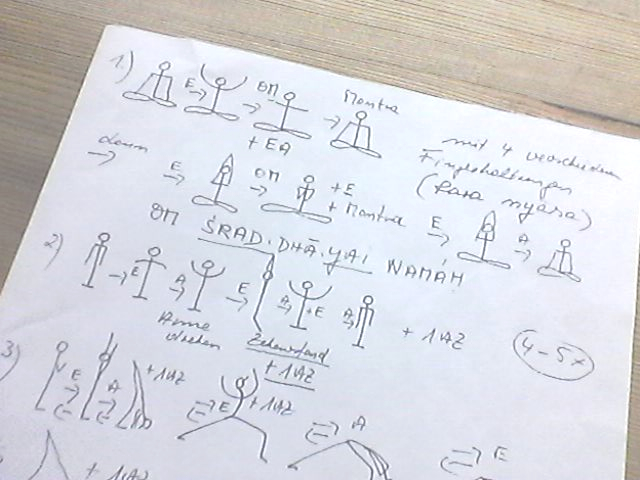 1.) E OM Mantra
+ EA
mit 4 verschiedenen
Fingerhaltungen
(Kara nyāsa)
dann E OM + E
+ Mantra E A
OM ŚRAD.DHĀ.YAI NAMAH
2) E A E A + E A + 1AZ
Arme
drehen
Zehenstand
+ 1AZ
4-5x
3) E A + 1AZ E + 1AZ A E
+ 1AZ